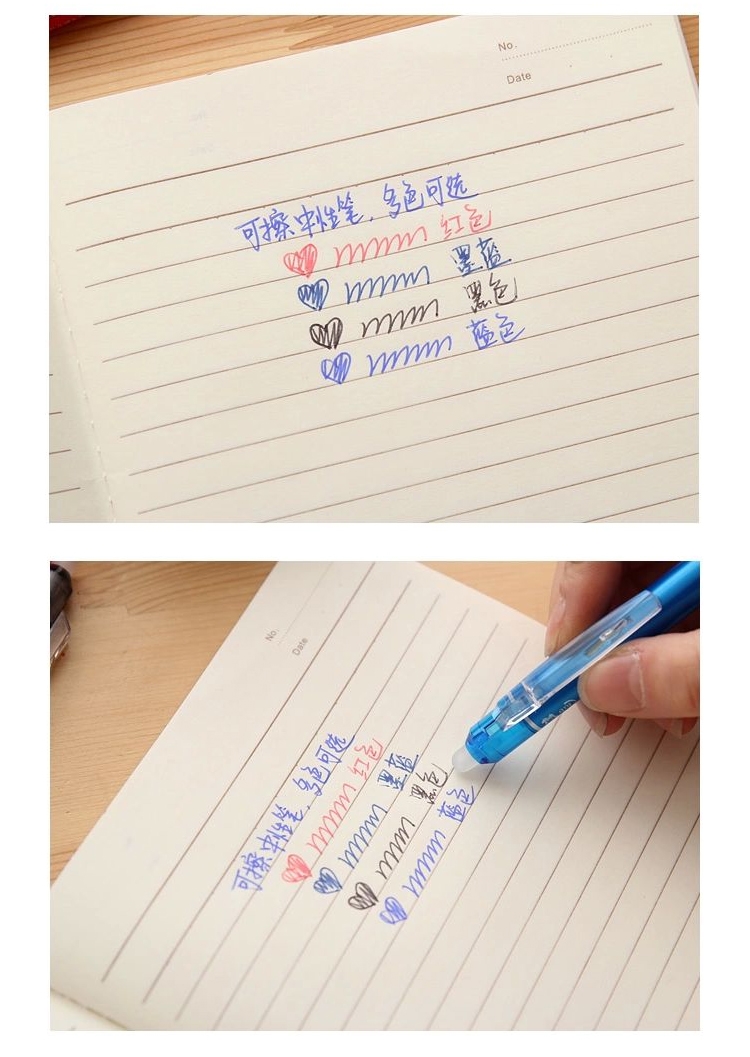 No.
Date
可擦中性笔,多色可选
红色
墨蓝
黑色
蓝色
No.
Date
可擦中性笔,多色可选
红色
墨蓝
黑色
蓝色